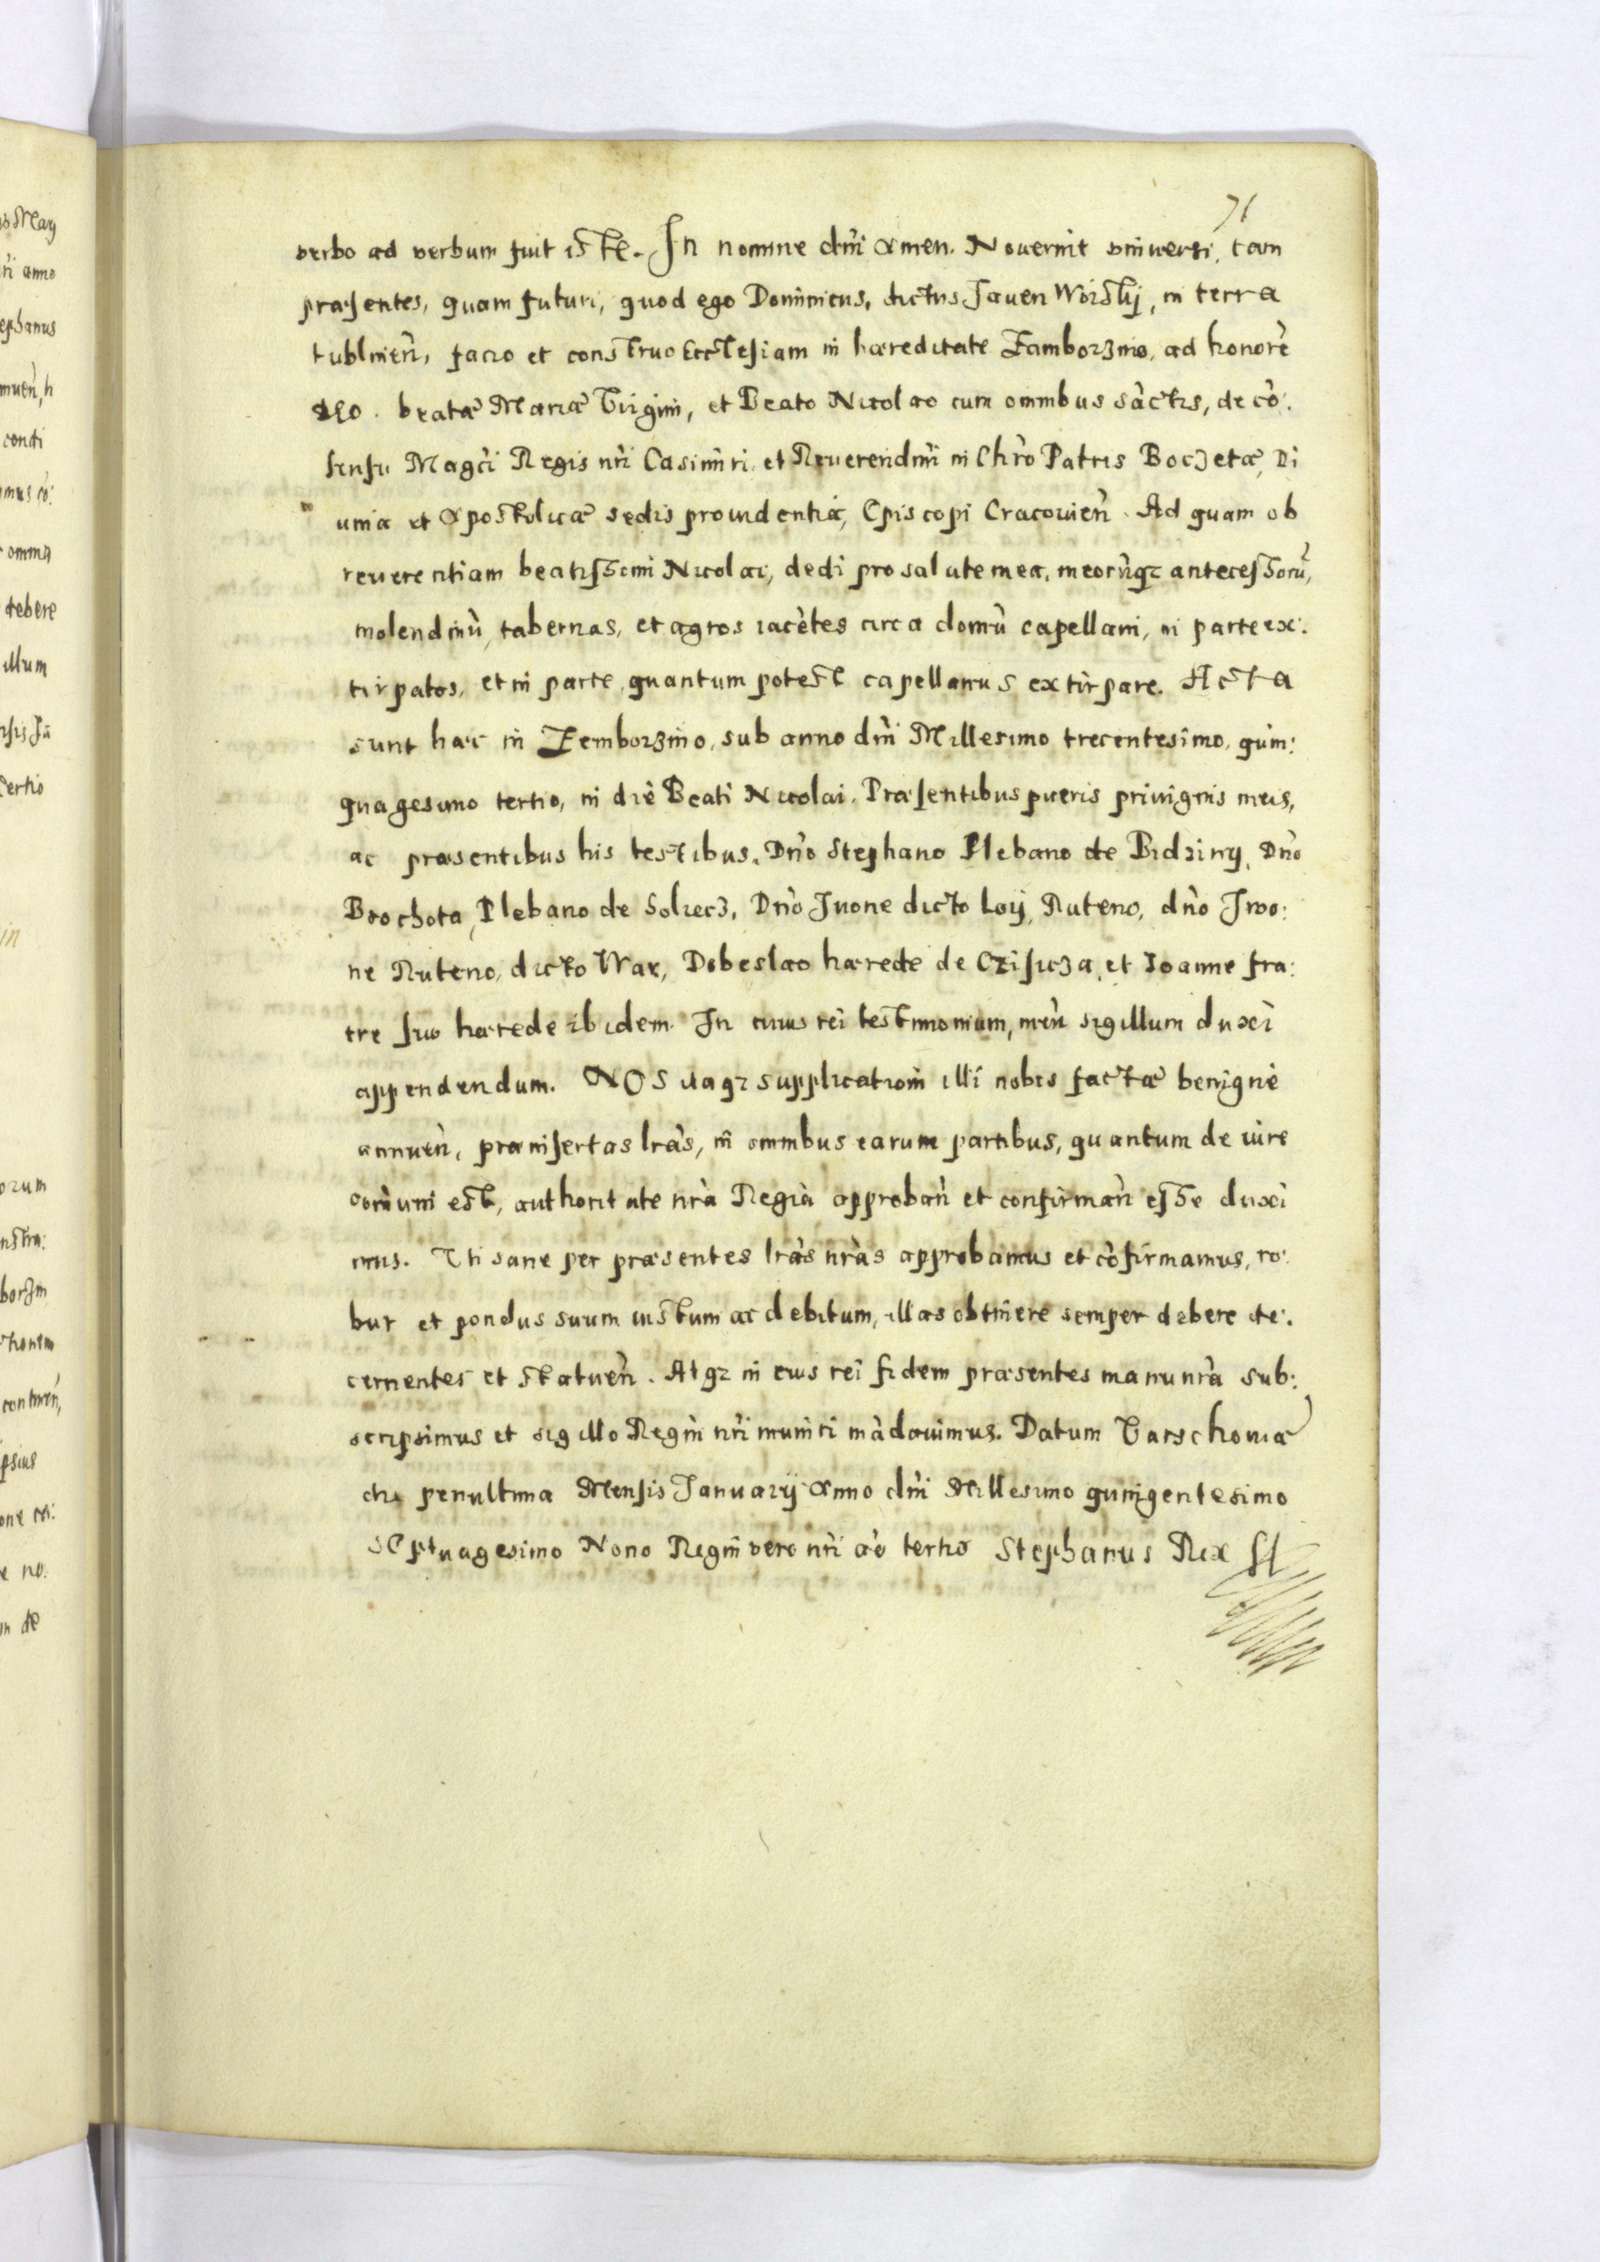 71
verbo ad verbum fuit iste. In nomine dni amen. Noverint universi, tam
præsentes, quam futuri, quod ego Dominicus, dictus Javen Woisky, in terra
Lublinen, facio et construo Ecclesiam in hæreditate Zamborzino, ad honorē
deo. beatæ Mariæ Virgini, et Beato Nicolao cum omnibus sāctis, de cō:
sensu Magci Regis nri Casimiri et Reverendmi in Chro Patris Boczetæ, Di
uina et Apostolicæ sedis prouidentia, Episcopi Cracouien. Ad quam ob
reuerentiam beatissimi Nicolai, dedi pro salute mea, meorūqz antecessorū,
molendinū, tabernas, et agros iacētes circa domū capellani, in parte ex:
tirpatos, et in parte, quantum potest capellanus extirpare. Acta
sunt hæc in Zemborzino, sub anno dni Millesimo trecentesimo, quin:
quagesimo tertio, in diē Beati Nicolai. Præsentibus pueris priuignis meis,
ac præsentibus his testibus. Dno Stephano Plebano de Bidziny, Dno
Brochota, Plebano de Soliecz, Dno Juone dicto Loij, Ruteno, dno Jwo:
ne Ruteno, dicto War, Dobeslao hærede de Czisicza, et Joanne fra:
tre suo hærede ibidem. In cuius rei testimonium, meū sigillum duxi
appendendum. NOS itaqz supplicationi illi nobis factæ benignè
annuen, præinsertas lras, in omnibus earum partibus, quantum de iure
comuni est, authoritate nra Regia approban et confirman esse duxi
mus. Vti sane per præsentes lras nras approbamus et cōfirmamus, ro:
bur et pondus suum iustum ac debitum, illas obtinere semper debere de:
cernentes et statuen. Atqz in eius rei fidem præsentes manu nra sub:
scripsimus et sigillo Regni nri muniri mādauimus. Datum Varschoviæ
die penultima Mensis Januarij Anno dni Millesimo quingentesimo
septuagesimo Nono Regni vero nri ao tertio Stephanus Rex